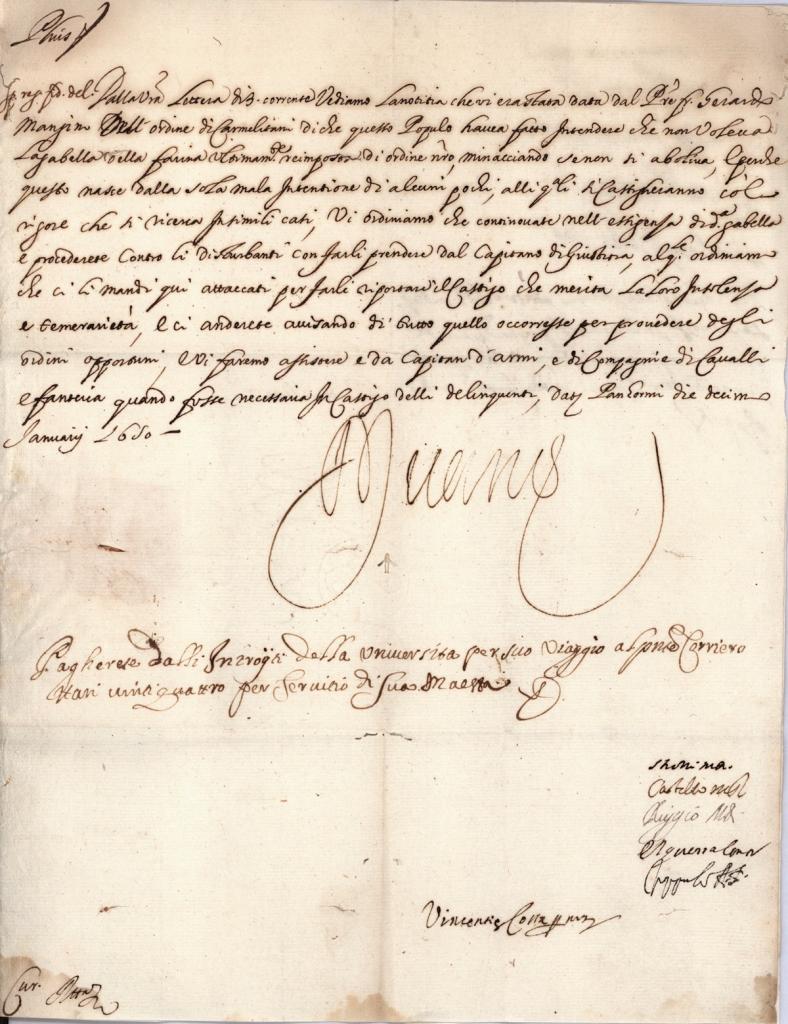 Dalla Vra Lettera di 3. corrente Vediamo La notitia che vi era stata data dal Pre fr. Gerardo
Mangini Dell ordine di Carmelitani di che questo Populo havea fatto Intendere che non Voleva
La gabella della farina Ultimamte reimposta di ordine nro, minacciando se non si aboliva, E perche
questo nasce dalla sola mala Intentione di alcuni pochi, alli qli si Castigheranno col
rigore che si ricerca In simili casi, Vi ordiniamo che continovate nell essigensa di da gabella
e procederete Contro li Disturbanti con farli prendere dal Capitano di Giustitia, al qle ordiniamo
che ci li mandi qui attaccati per farli riportare il Castigo che merita La Loro Insolensa
e temerarietà, E ci anderete avisando di tutto quello occorresse per provedere degli
ordini opportuni, E Vi faremo assistere e da Capitan d'armi, e di Compagnie di Cavalli
e fanteria quando fosse necessaria In Castigo delli delinquenti, Datz Panhormi die decimo
Januarij 1650
Pagherete dalli Introyti della Università per suo Viaggio al pnte Corriero
tari vinti quattro per Servitio di Sua Maestà